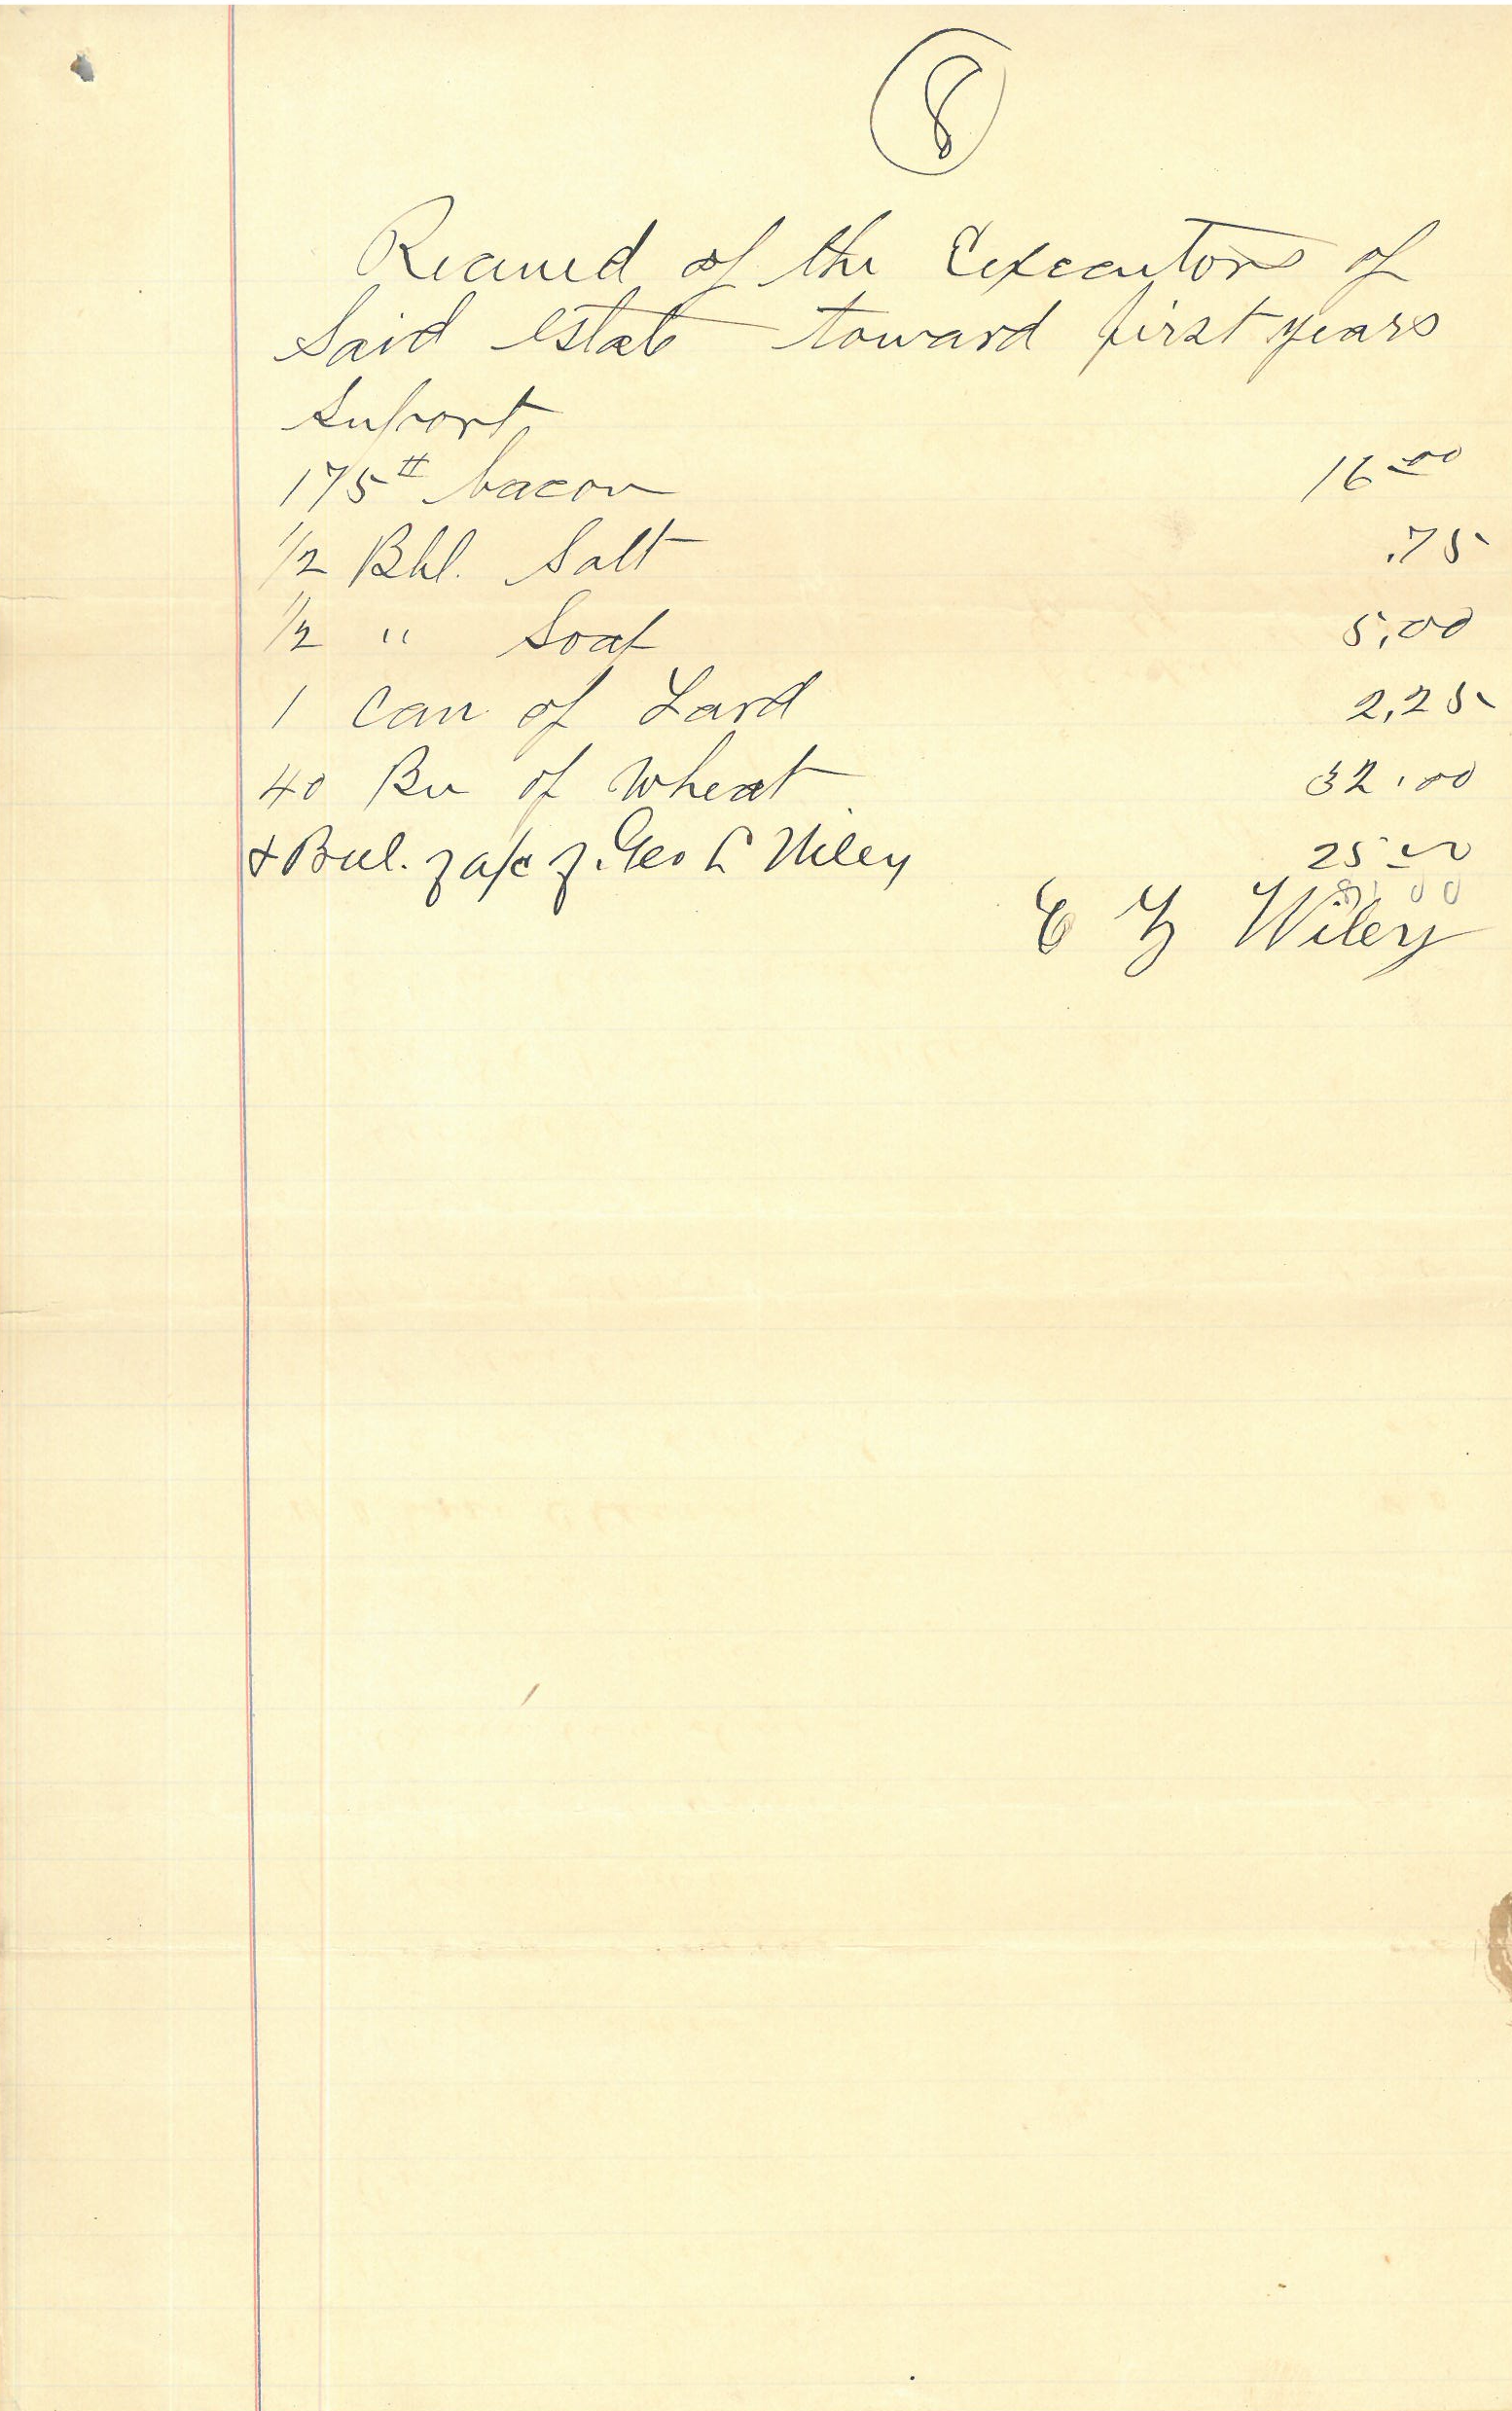 8
Received of the Executors of
Said Estate toward first years
Suport
175# bacon 16 00
1/2 Bbl. Salt .75
1/2 " Soap 5.00
1 Can of Lard 2,25
40 Bu of Wheat 32.00
& Bal. of a/c of Geo L Wiley 25 00
81 00
E Wiley